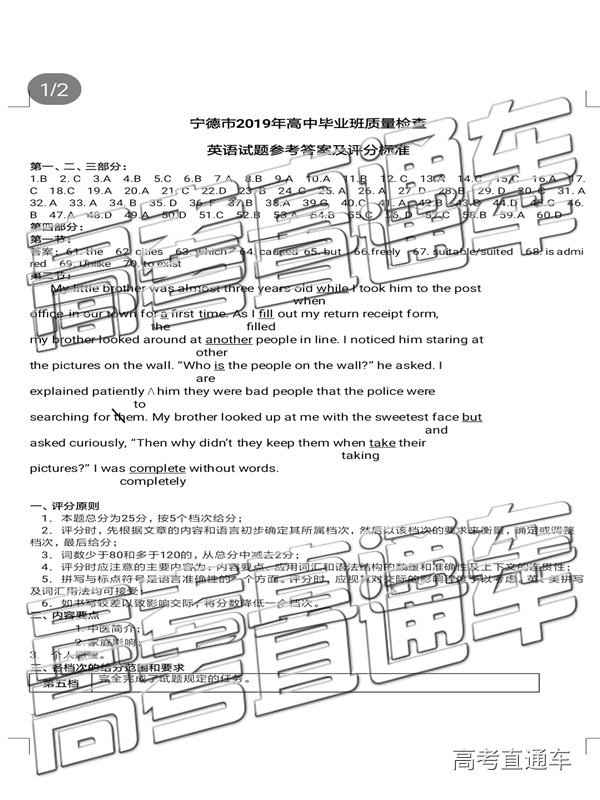 1/2
宁德市2019年高中毕业班质量检查
英语试题参考答案及评分标准
第一、二、三部分：
1.B 2.C 3.A 4.B 5.C 6.B 7.A 8.B 9.A 10.A 11.B 12.C 13.A 14.C 15.C 16.A 17.
C 18.C 19.A 20.A 21.C 22.D 23.B 24.C 25.A 26.A 27.D 28.B 29.D 30.C 31.A
32.A 33.A 34.B 35.D 36.F 37.B 38.A 39.G 40.C 41.A 42.B 43.D 44.D 45.C 46.
B 47.A 48.D 49.A 50.D 51.C 52.B 53.A 54.B 55.C 56.D 57.C 58.B 59.A 60.D
第四部分：
第一节：
答案：61. the 62. cities 63. which 64. caused 65. but 66.freely 67. suitable/suited 68. is admi
red 69. Unlike 70. to exist
第二节：
My little brother was almost three years old while I took him to the post
when
office in our town for a first time. As I fill out my return receipt form,
the filled
my brother looked around at another people in line. I noticed him staring at
other
the pictures on the wall. “Who is the people on the wall?” he asked. I
are
explained patiently ∧ him they were bad people that the police were
to
searching for them. My brother looked up at me with the sweetest face but
and
asked curiously, “Then why didn’t they keep them when take their
taking
pictures?” I was complete without words.
completely
一、评分原则
1. 本题总分为25分，按5个档次给分；
2. 评分时，先根据文章的内容和语言初步确定其所属档次，然后以该档次的要求来衡量，确定或调整
档次，最后给分；
3. 词数少于80和多于120的，从总分中减去2分；
4. 评分时应注意的主要内容为：内容要点、应用词汇和语法结构的数量和准确性及上下文的连贯性；
5. 拼写与标点符号是语言准确性的一个方面。评分时，应视其对交际的影响程度予以考虑。英、美拼写
及词汇用法均可接受；
6. 如书写较差以致影响交际，将分数降低一个档次。
二、内容要点
1. 中医简介；
2. 家庭影响；
3. 个人愿望。
三、各档次的给分范围和要求
第五档 完全完成了试题规定的任务。
高考直通车
高考直通车
高考直通车